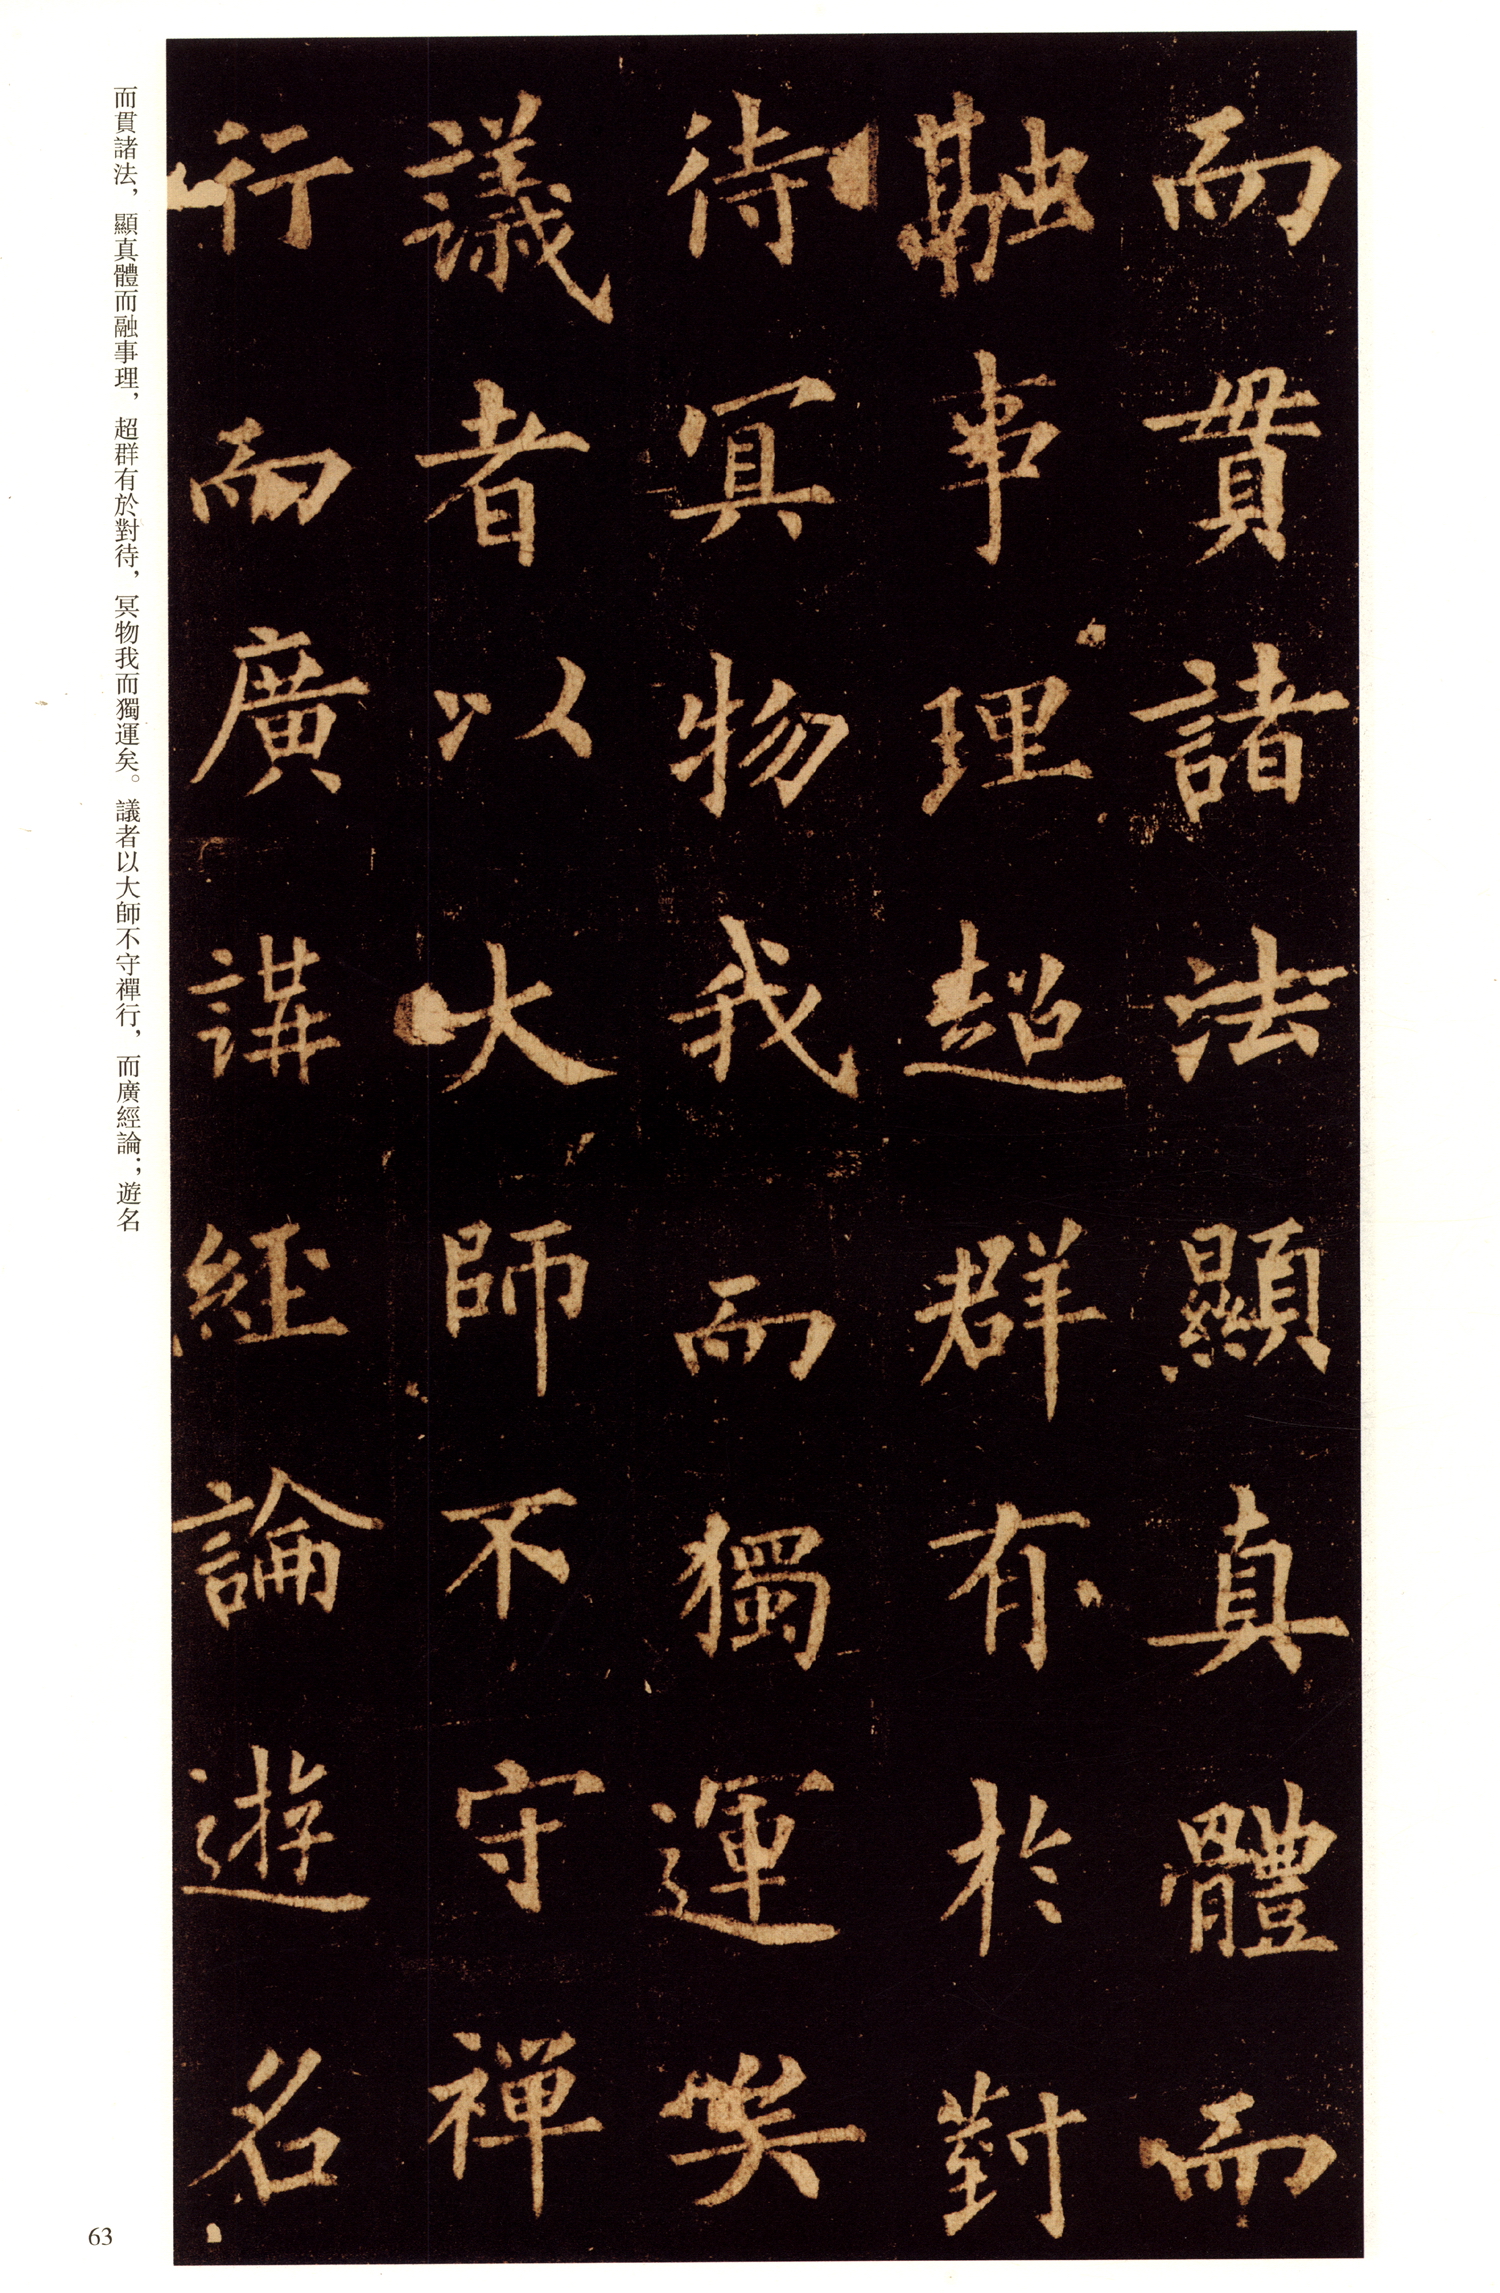 而貫諸法顯真體而
融事理超群有於對
待冥物我而獨運矣
議者以大師不守禪
行而廣講經論遊名
而貫諸法，顯真體而融事理，超群有於對待，冥物我而獨運矣。議者以大師不守禪行，而廣經論；遊名
63